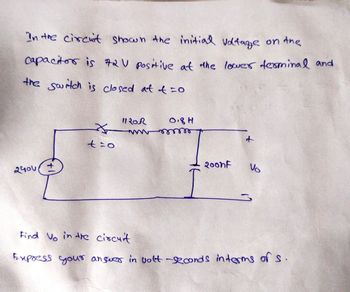 In the circuit shown the initial voltage on the
capacitor is 72 V positive at the lower terminal and
the switch is closed at t=0
1120Ω 0.8 H
t=0
+
240V + 200nF V₀
-
Find V₀ in the circuit
Express your answer in volt-seconds interms of s.